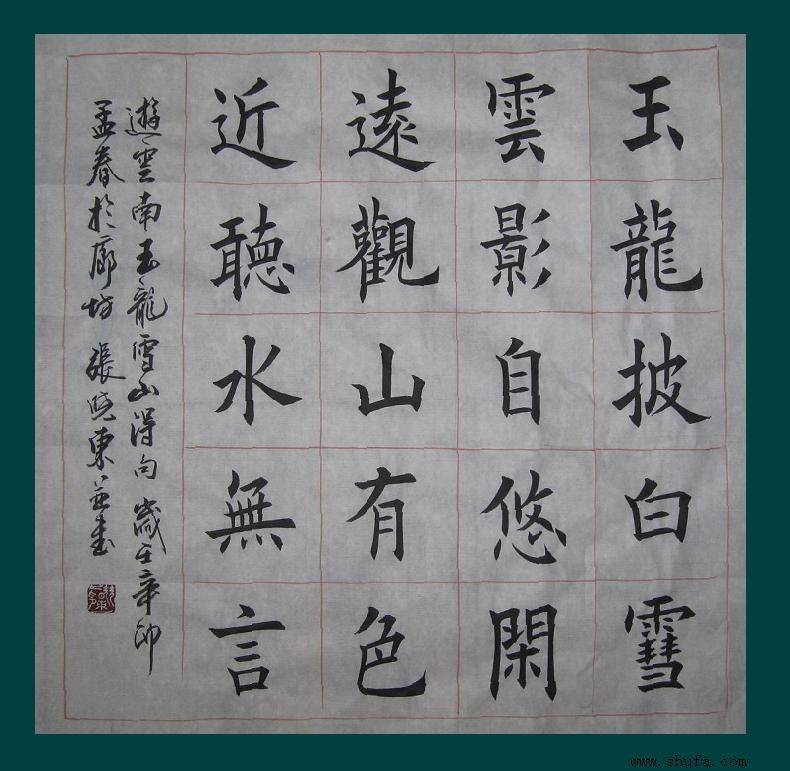 玉龍披白雪
雲影自悠閑
遠觀山有色
近聽水無言
遊雲南玉龍雪山得句 歲在辛卯
孟春於廊坊 張曉東並書
www.shufa.com